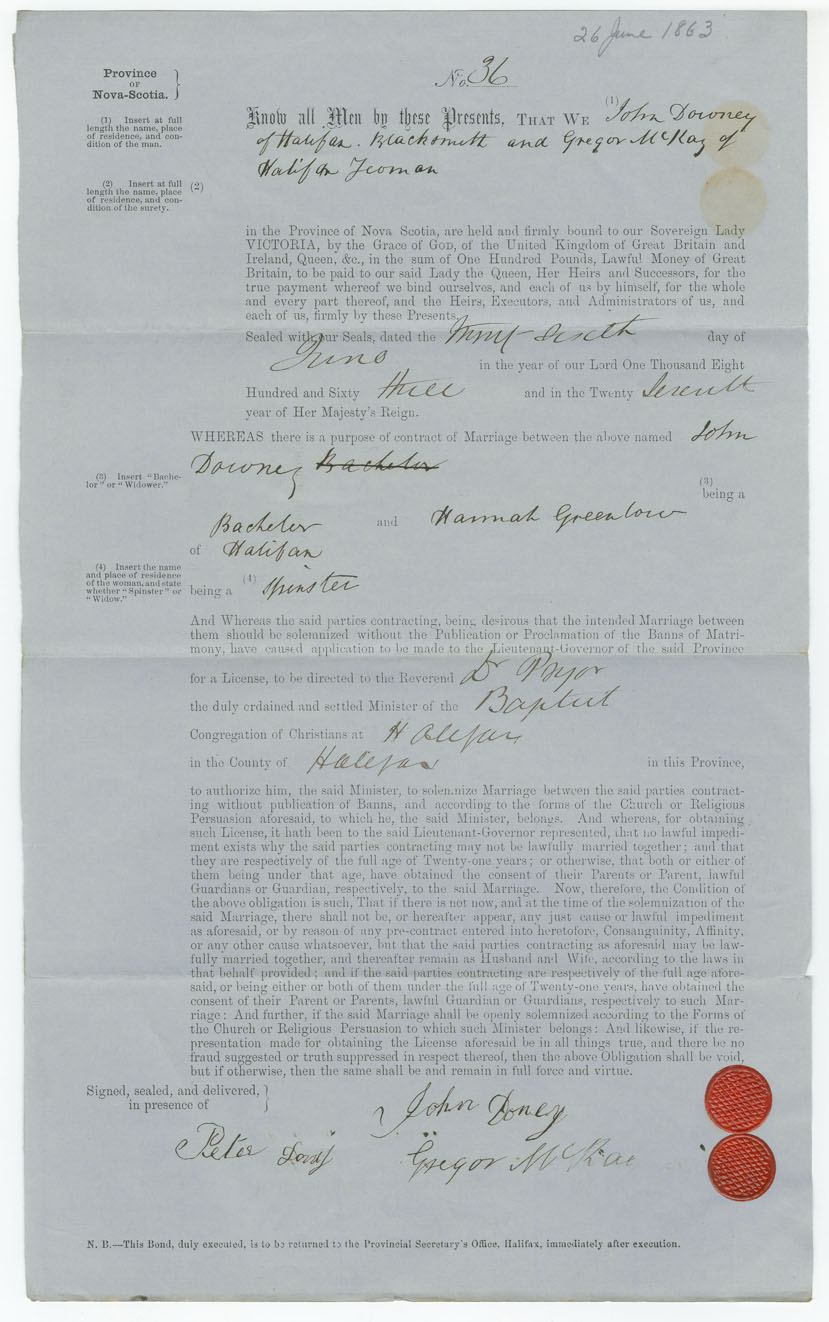 26 June 1863
No. 36
Province
OF
Nova-Scotia.
(1) Insert at full
length the name, place
of residence, and con-
dition of the man.
(2) Insert at full
length the name, place
of residence, and con-
dition of the surety.
(2)
Know all Men by these Presents, THAT WE (1) John Downey
of Halifax. Blacksmith and Gregor McKay of
Halifax Yeoman
in the Province of Nova Scotia, are held and firmly bound to our Sovereign Lady
VICTORIA, by the Grace of GOD, of the United Kingdom of Great Britain and
Ireland, Queen, &c., in the sum of One Hundred Pounds, Lawful Money of Great
Britain, to be paid to our said Lady the Queen, Her Heirs and Successors, for the
true payment whereof we bind ourselves, and each of us by himself, for the whole
and every part thereof, and the Heirs, Executors, and Administrators of us, and
each of us, firmly by these Presents.
Sealed with our Seals, dated the Twent Sixth day of
June in the year of our Lord One Thousand Eight
Hundred and Sixty three and in the Twenty Seventh
year of Her Majesty's Reign.
WHEREAS there is a purpose of contract of Marriage between the above named John
Downey Bachelor
(3) Insert "Bache-
lor" or "Widower."
(3)
being a
Bachelor and Hannah Greenlow
of Halifax
(4) Insert the name
and place of residence
of the woman, and state
whether "Spinster" or
"Widow."
being a (4) Spinster
And Whereas the said parties contracting, being desirous that the intended Marriage between
them should be solemnized without the Publication or Proclamation of the Banns of Matri-
mony, have caused application to be made to the Lieutenant-Governor of the said Province
for a License, to be directed to the Reverend Dr Pryor
the duly ordained and settled Minister of the Baptist
Congregation of Christians at Halifax
in the County of Halifax in this Province,
to authorize him, the said Minister, to solemnize Marriage between the said parties contract-
ing without publication of Banns, and according to the forms of the Church or Religious
Persuasion aforesaid, to which he, the said Minister, belongs. And whereas, for obtaining
such License, it hath been to the said Lieutenant-Governor represented, that no lawful impedi-
ment exists why the said parties contracting may not be lawfully married together; and that
they are respectively of the full age of Twenty-one years; or otherwise, that both or either of
them being under that age, have obtained the consent of their Parents or Parent, lawful
Guardians or Guardian, respectively, to the said Marriage. Now, therefore, the Condition of
the above obligation is such, That if there is not now, and at the time of the solemnization of the
said Marriage, there shall not be, or hereafter appear, any just cause or lawful impediment
as aforesaid, or by reason of any pre-contract entered into heretofore, Consanguinity, Affinity,
or any other cause whatsoever, but that the said parties contracting as aforesaid may be law-
fully married together, and thereafter remain as Husband and Wife, according to the laws in
that behalf provided; and if the said parties contracting are respectively of the full age afore-
said, or being either or both of them under the full age of Twenty-one years, have obtained the
consent of their Parent or Parents, lawful Guardian or Guardians, respectively to such Mar-
riage: And further, if the said Marriage shall be openly solemnized according to the Forms of
the Church or Religious Persuasion to which such Minister belongs: And likewise, if the re-
presentation made for obtaining the License aforesaid be in all things true, and there be no
fraud suggested or truth suppressed in respect thereof, then the above Obligation shall be void,
but if otherwise, then the same shall be and remain in full force and virtue.
Signed, sealed, and delivered,
in presence of
John Doney
Peter
Gregor McKae
N. B.—This Bond, duly executed, is to be returned to the Provincial Secretary's Office, Halifax, immediately after execution.